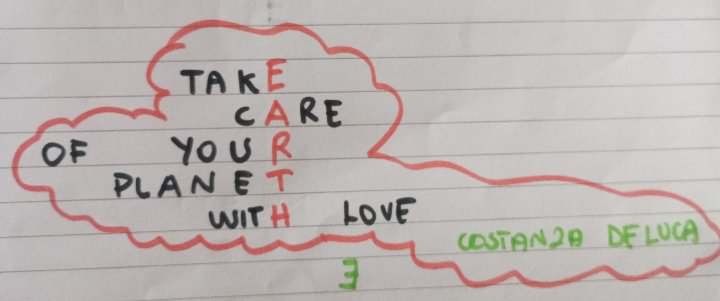 TAKE
CARE
OF YOUR
PLANET
WITH LOVE
COSTANZA DELUCA
3